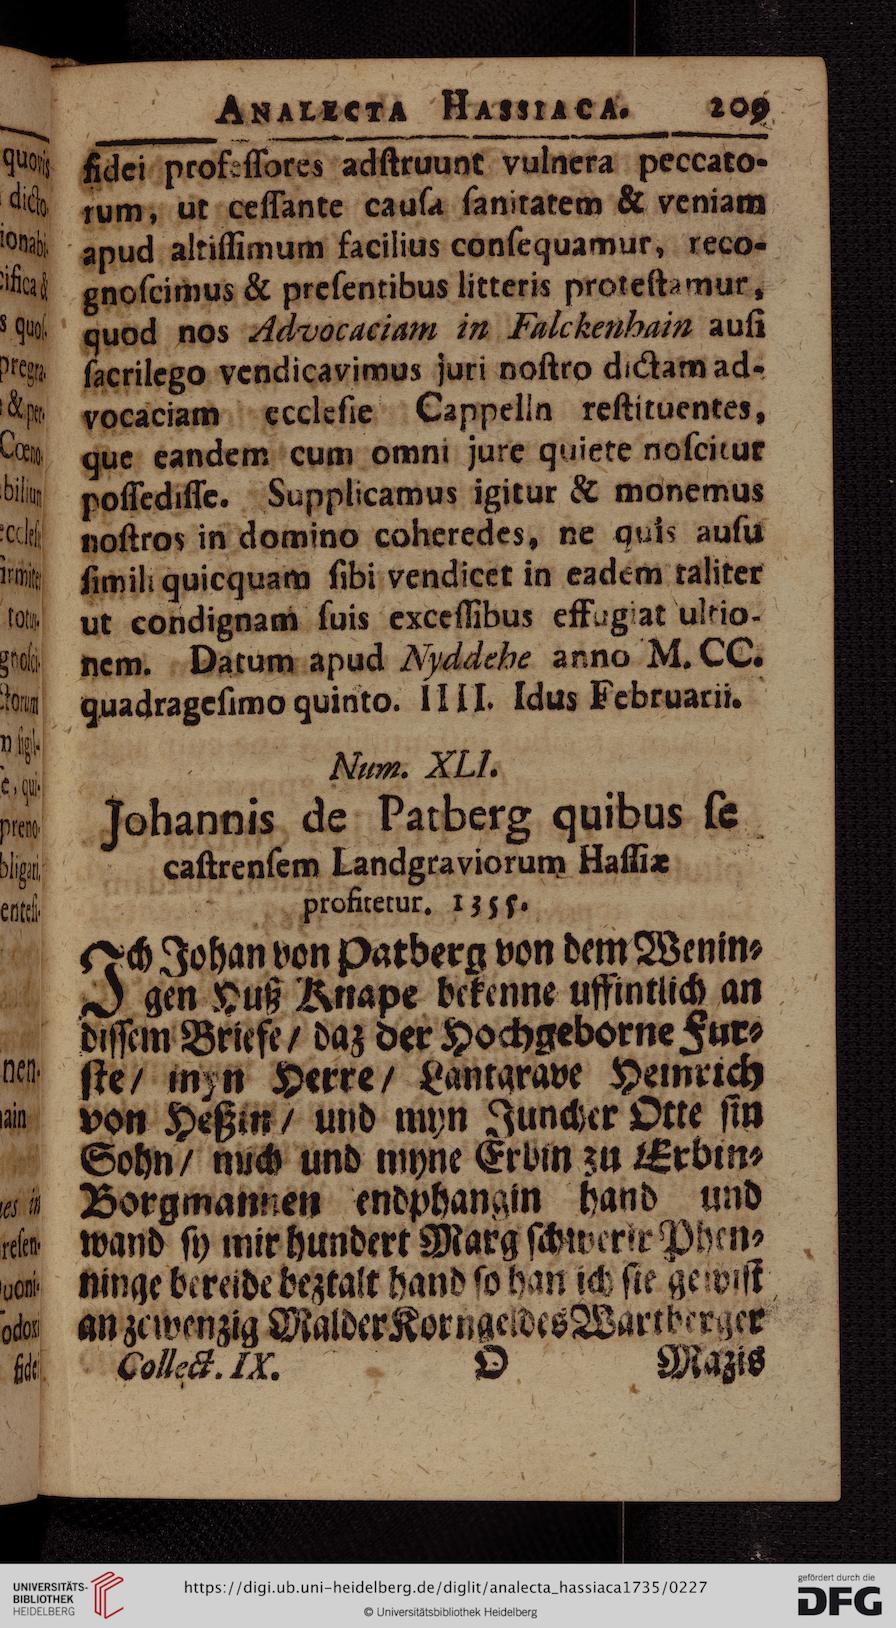 ANALECTA HASSIACA. 209
fidei profeſſores adſtruunt vulnera peccato-
rum, ut ceſſante cauſa ſanitatem & veniam
apud altiſſimum facilius conſequamur, reco-
gnoſcimus & preſentibus litteris proteſtamur,
quod nos Advocaciam in Falckenhain auſi
ſacrilego vendicavimus juri noſtro dictam ad-
vocaciam eccleſie Cappelln reſtituentes,
que eandem cum omni jure quiete noſcitur
poſſediſſe. Supplicamus igitur & monemus
noſtros in domino coheredes, ne quis auſu
ſimili quicquam ſibi vendicet in eadem taliter
ut condignam ſuis exceſſibus effugiat ultio-
nem. Datum apud Nyddehe anno M. CC.
quadrageſimo quinto. IIII. Idus Februarii.
Num. XLI.
Johannis de Patberg quibus ſe
caſtrenſem Landgraviorum Haſſiæ
profitetur. 1355.
Ich Johan von Patberg von dem Wenin-
gen Huß Knape bekenne uffintlich an
diſſem Briefe/ daz der Hochgeborne Fur-
ſte/ myn Herre/ Lantgrave Heinrich
von Heßin/ und myn Juncher Otte ſin
Sohn/ mich und myne Erbin zu Erbin-
Borgmannen endphangin hand und
wand ſy mir hundert Marg ſchwerir Phen-
ninge bereide beztalt hand ſo han ich ſie gewiſt
an zcwenzig Malder Korngeldes Wartberger
Collect. IX. O Mazis
quovis
dicto
ionabi-
cifica &
s quoſ-
pregra-
& per-
Cœno-
biliun
eccleſi
irmiter
totu-
gnoſci-
ctorum
n ſigil-
e, qui-
preno-
bligati,
enteſi-
nen-
ain
es in
reſen-
uoni-
odoxi
fidei
UNIVERSITÄTS-
BIBLIOTHEK
HEIDELBERG
https://digi.ub.uni-heidelberg.de/diglit/analecta_hassiaca1735/0227
© Universitätsbibliothek Heidelberg
gefördert durch die
DFG